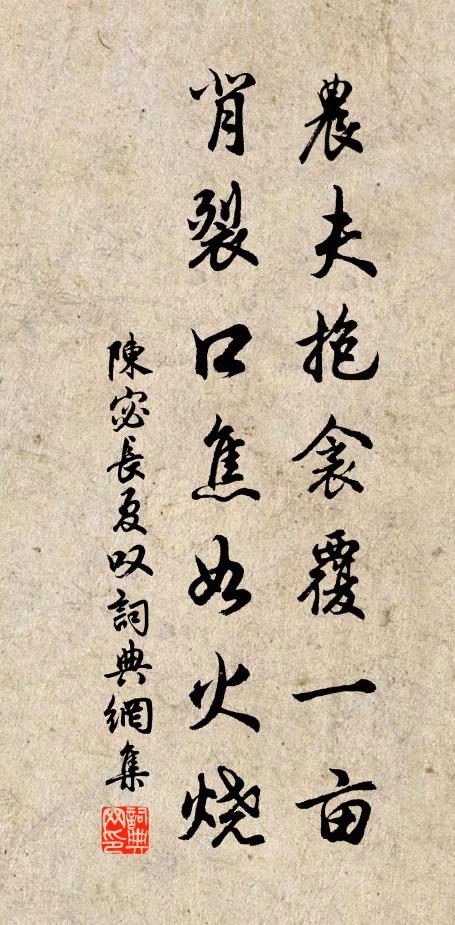 農夫抱衾覆一亩
背裂口焦如火烧
陳宓長夏叹詞典網集
詞典网印